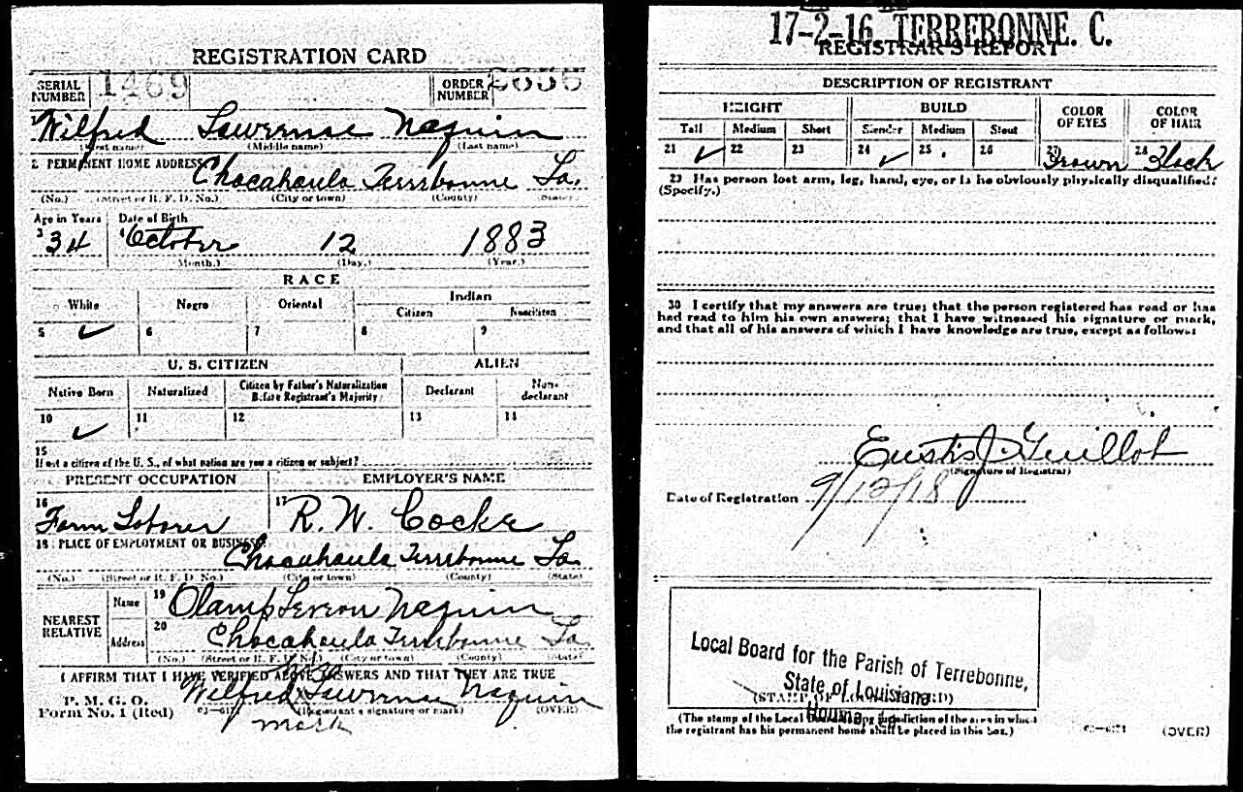 REGISTRATION CARD
SERIAL NUMBER 1469 ORDER NUMBER
Wilfred Lawrense Naquin
(First name) (Middle name) (Last name)
2 PERMANENT HOME ADDRESS
Chacahaula Terrebonne La.
(No.) (Street or R. F. D. No.) (City or town) (County) (State)
Age in Years Date of Birth
3 34 4 October 12 1883
(Month.) (Day.) (Year.)
RACE
White Negro Oriental Indian
Citizen Noncitizen
5 ✓ 6 7 8 9
U. S. CITIZEN ALIEN
Native Born Naturalized Citizen by Father's Naturalization Before Registrant's Majority Declarant Non-declarant
10 ✓ 11 12 13 14
15
If not a citizen of the U. S., of what nation are you a citizen or subject?
PRESENT OCCUPATION EMPLOYER'S NAME
16 Farm Laborer 17 R. W. Cocke
18 PLACE OF EMPLOYMENT OR BUSINESS:
Chacahaula Terrebonne La.
(No.) (Street or R. F. D. No.) (City or town) (County) (State)
NEAREST RELATIVE
Name 19 Olamp Naquin
Address 20 Chacahaula Terrebonne La.
(No.) (Street or R. F. D. No.) (City or town) (County) (State)
I AFFIRM THAT I HAVE VERIFIED ABOVE ANSWERS AND THAT THEY ARE TRUE
P. M. G. O.
Form No. 1 (Red)
Wilfred Lawrense Naquin
his X mark
(Registrant's signature or mark) (OVER)
17-2-16 TERREBONNE. C.
REGISTRAR'S REPORT
DESCRIPTION OF REGISTRANT
HEIGHT BUILD COLOR OF EYES COLOR OF HAIR
Tall Medium Short Slender Medium Stout
21 ✓ 22 23 24 ✓ 25 26 27 Brown 28 Black
29 Has person lost arm, leg, hand, eye, or is he obviously physically disqualified?
(Specify.)
30 I certify that my answers are true; that the person registered has read or has
had read to him his own answers; that I have witnessed his signature or mark,
and that all of his answers of which I have knowledge are true, except as follows:
Eustis J. Guillot
(Signature of Registrar)
Date of Registration 9/12/18
Local Board for the Parish of Terrebonne,
State of Louisiana
Houma, La.
(STAMP OF LOCAL BOARD)
(The stamp of the Local Board having jurisdiction of the area in which
the registrant has his permanent home shall be placed in this box.)
(OVER)